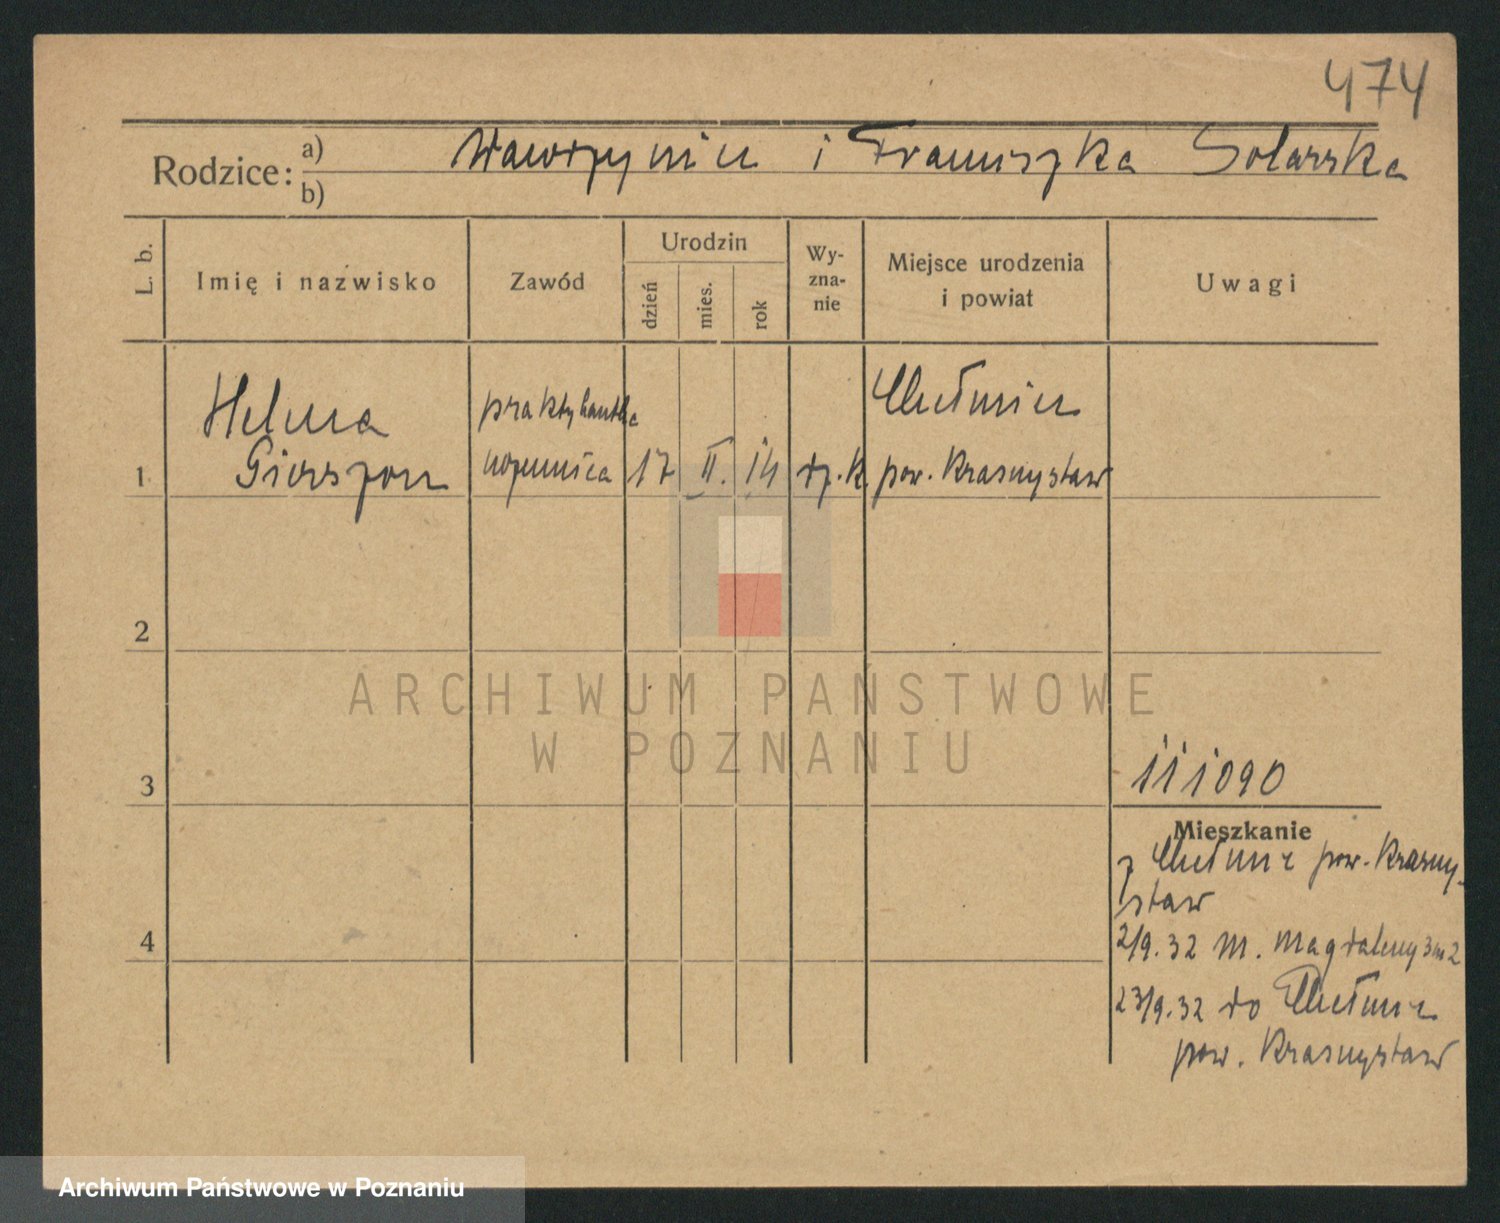 474
Rodzice: a) b) Wawrzyniec i Franciszka Solarska
L. b.
Imię i nazwisko
Zawód
Urodzin
dzień
mies.
rok
Wy-
zna-
nie
Miejsce urodzenia
i powiat
Uwagi
Helena
praktykantka
Chełmiec
1 Gierszon 17 II. 14 rz. k. pow. Krasnystaw
2
ARCHIWUM PAŃSTWOWE
W POZNANIU
3
111090
Mieszkanie
z pow. Krasny-
staw
4
2/9.32 M. Magdaleny 3 m 2
23/9.32 do
pow. Krasnystaw
Archiwum Państwowe w Poznaniu